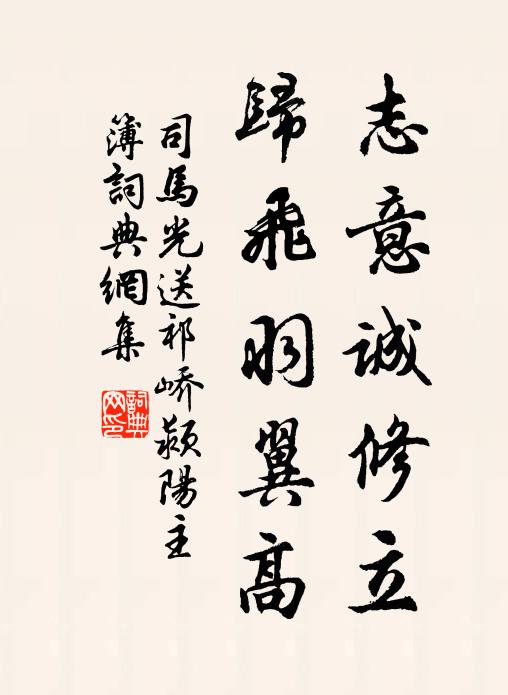 志意誠修立
歸飛羽翼高
司馬光送祁嶠潁陽主
簿詞典網集
詞典
网印